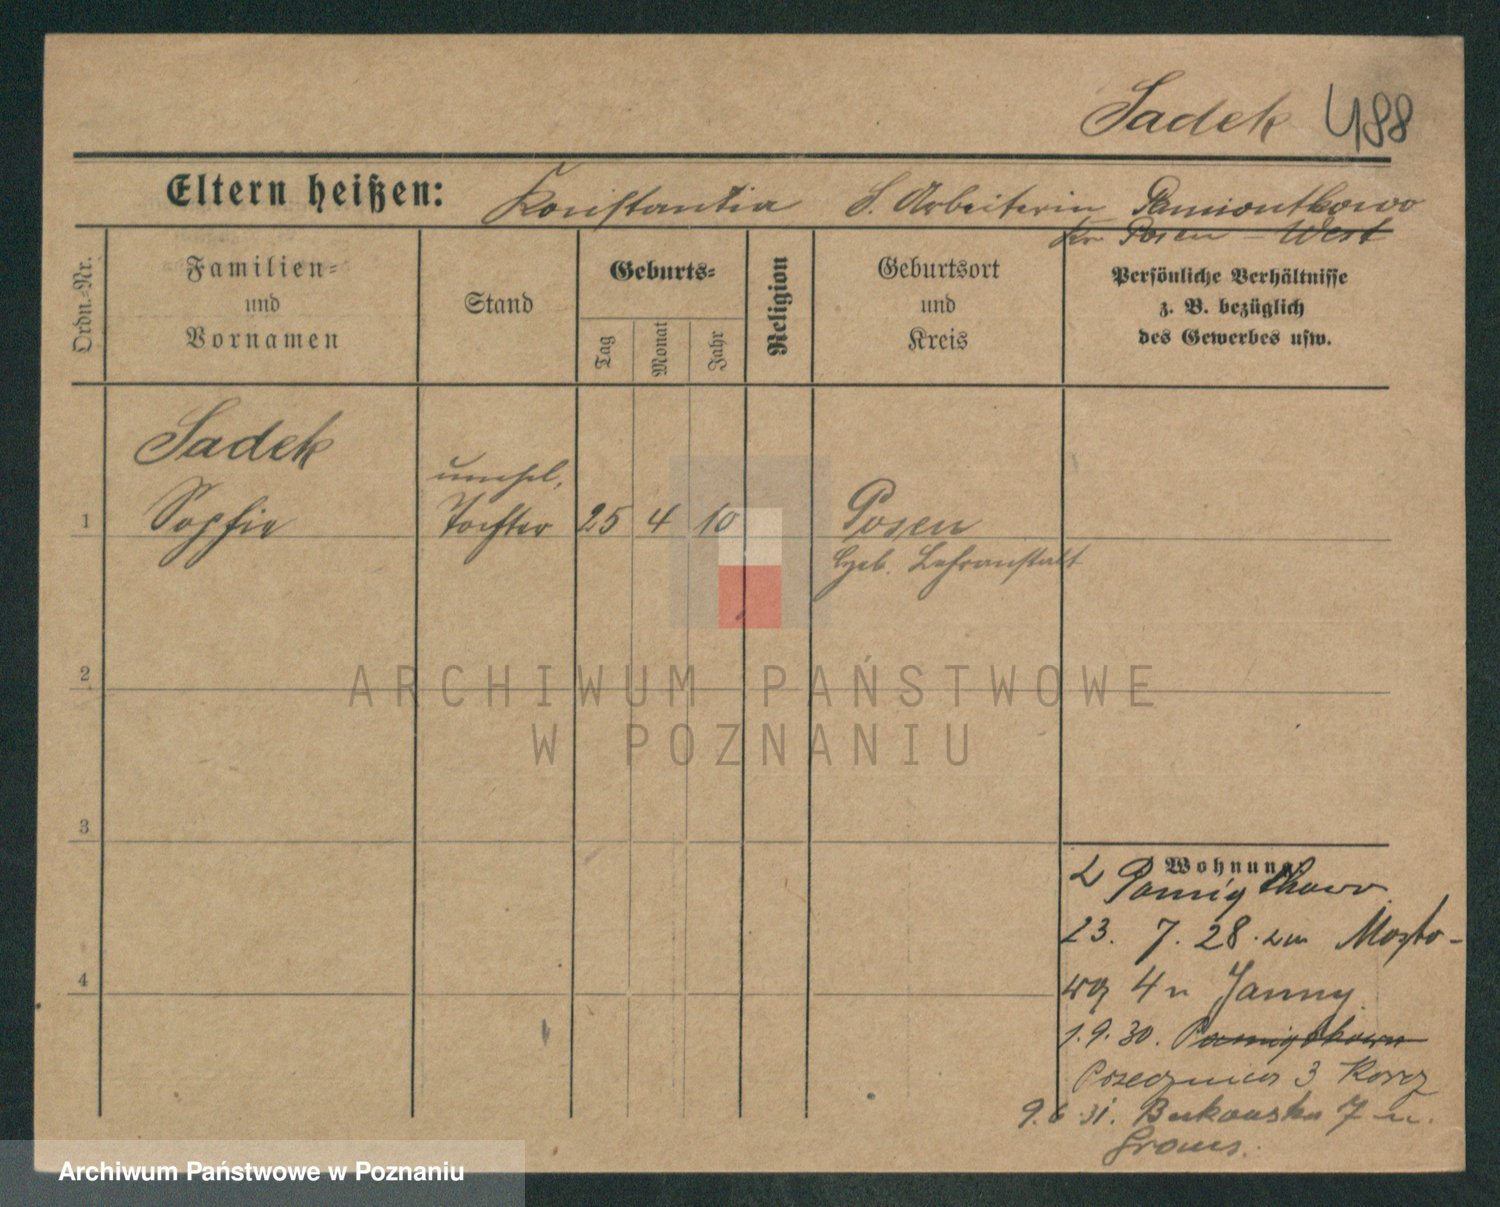 Sadek 488
Eltern heißen: Konstantia S. Arbeiterin Pamiontkowo
Kr. Posen - West
Ordn.-Nr.
Familien-
und
Vornamen
Stand
Geburts-
Tag
Monat
Jahr
Religion
Geburtsort
und
Kreis
Persönliche Verhältnisse
z. B. bezüglich
des Gewerbes usw.
Sadek
unehel.
1 Sophie Tochter 25 4 10 Posen
Heb. Lehranstalt
2
ARCHIWUM PAŃSTWOWE
W POZNANIU
3
Wohnung:
Pamiątkowo
23. 7. 28. Mosto-
wa 4
4
1. 9. 30. Pamiątkowo
3
9. 6. 31. Bukowska 7
Archiwum Państwowe w Poznaniu